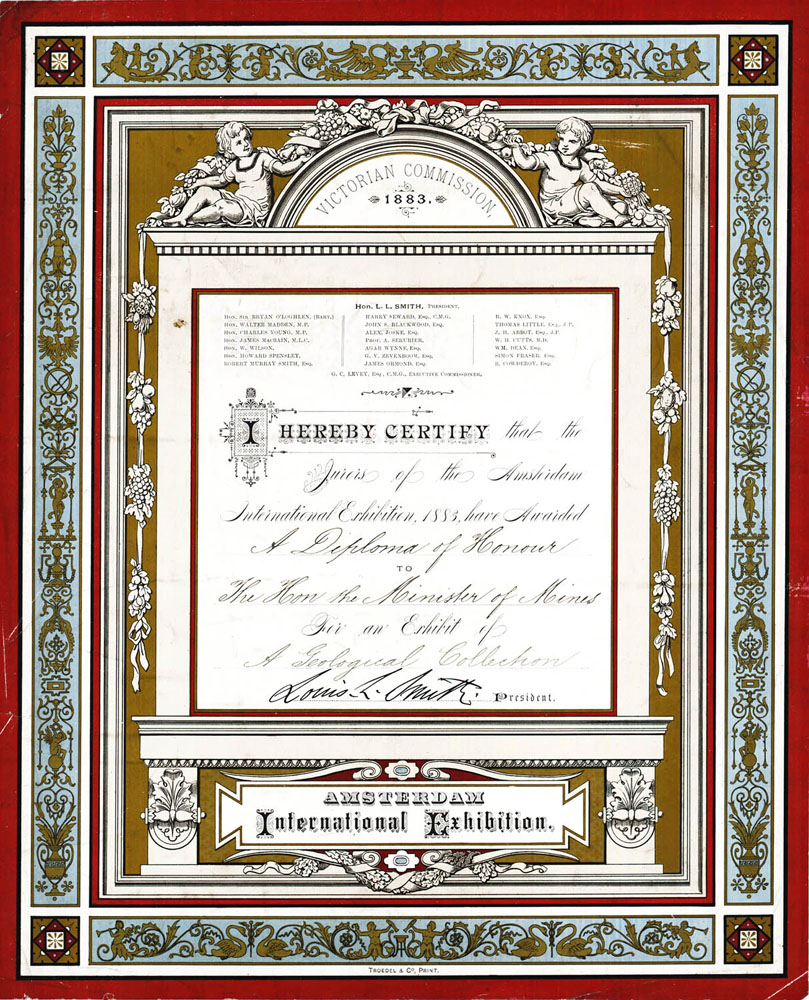 VICTORIAN COMMISSION,
1883.
HON. L. L. SMITH, PRESIDENT.
HON. SIR BRYAN O'LOGHLEN, (BART.)
HON. WALTER MADDEN, M.P.
HON. CHARLES YOUNG, M.P.
HON. JAMES MACBAIN, M.L.C.
HON. W. WILSON.
HON. HOWARD SPENSLEY.
ROBERT MURRAY SMITH, ESQ.
HARRY SEWARD, ESQ., C.M.G.
JOHN S. BLACKWOOD, ESQ.
ALEX. JOSKE, ESQ.
PROF. A. SERURIER,
AGAR WYNNE, ESQ.
G. V. ZEVENBOOM, ESQ.
JAMES ORMOND, ESQ.
R. W. KNOX, ESQ.
THOMAS LITTLE, ESQ., J.P.
J. H. ABBOT, ESQ., J.P.
W. H. CUTTS, M.D.
WM. DEAN, ESQ.
SIMON FRASER, ESQ.
R. COWDEROY, ESQ.
G. C. LEVEY, ESQ., C.M.G., EXECUTIVE COMMISSIONER.
I HEREBY CERTIFY that the
Jurors of the Amsterdam
International Exhibition, 1883, have Awarded
A Diploma of Honour
TO
The Hon the Minister of Mines
For an Exhibit of
A Geological Collection
Louis L. Smith. President.
AMSTERDAM
International Exhibition.
TROEDEL & Co, PRINT.